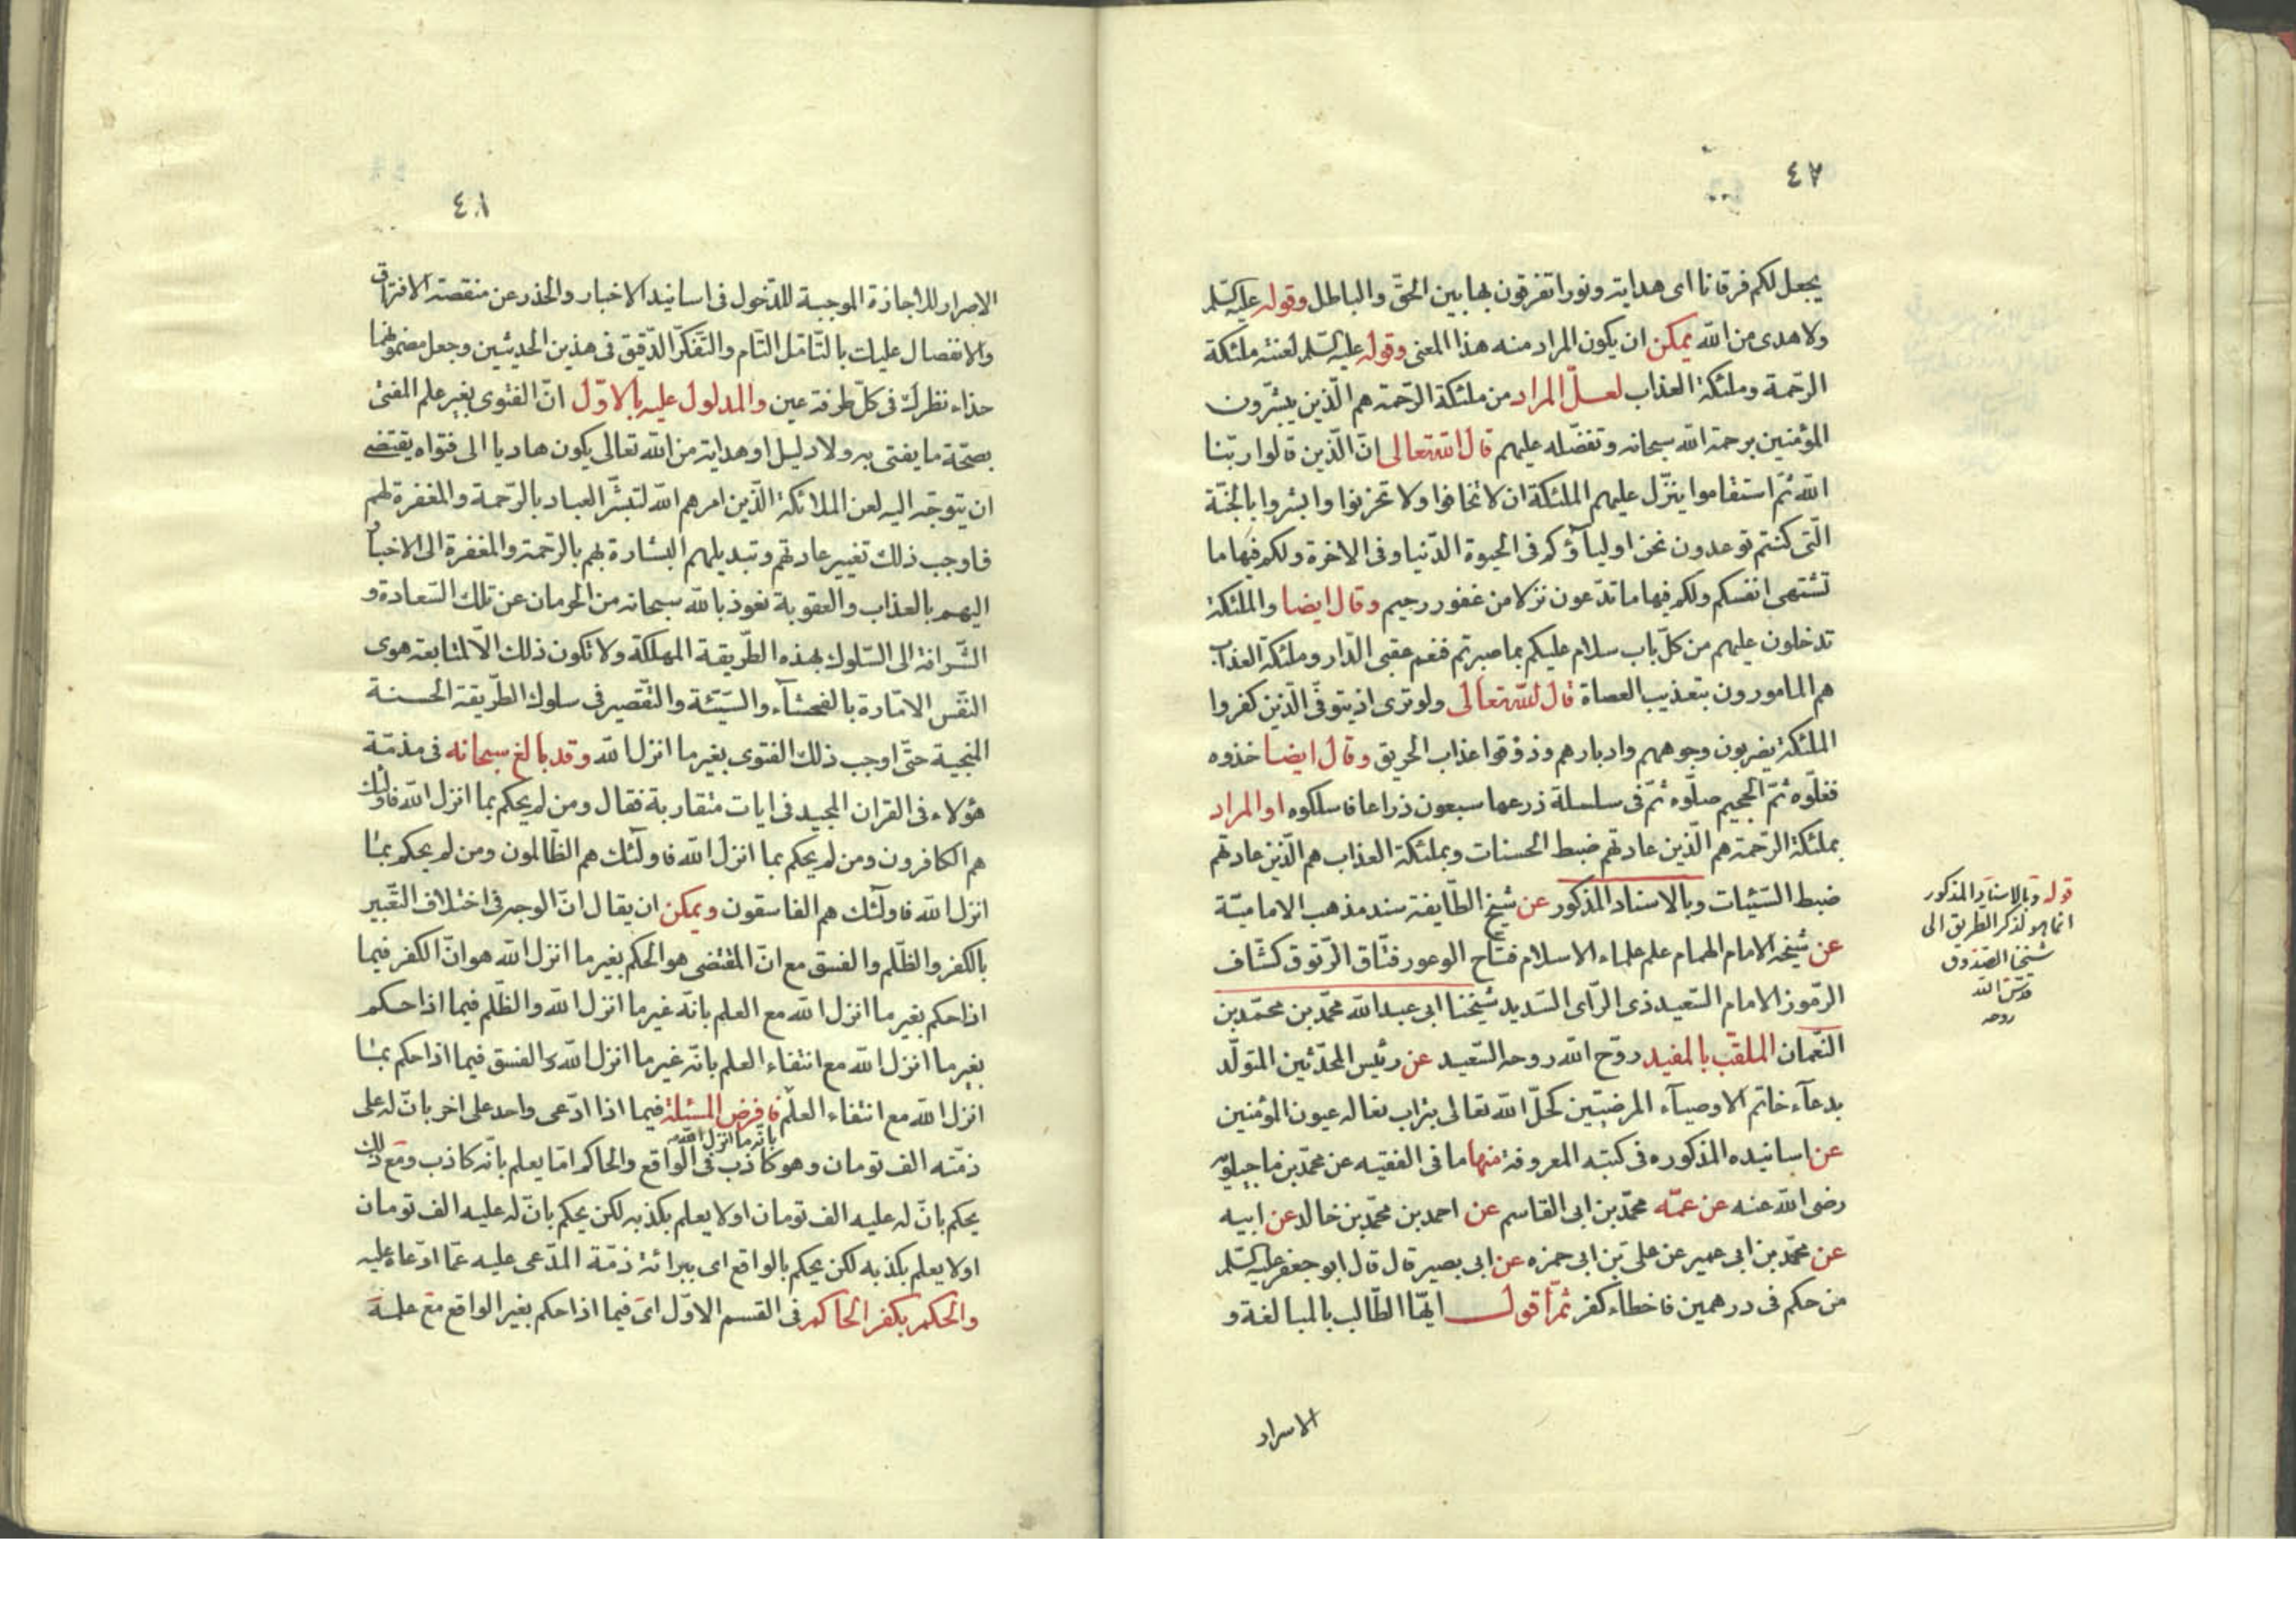 ٤٧
يجعل لكم فرقانا اى هداية ونورا تفرقون بها بين الحقّ والباطل وقوله عليه السّلم
ولا هدى من الله يمكن ان يكون المراد منه هذا المعنى وقوله عليه السّلم لعنته ملئكة
الرّحمة وملئكة العذاب لعلّ المراد من ملئكة الرّحمة هم الّذين يبشّرون
المؤمنين برحمة الله سبحانه وتفضّله عليهم قال الله تعالى انّ الّذين قالوا ربّنا
الله ثمّ استقاموا ينزّل عليهم الملئكة ان لا تخافوا ولا تحزنوا وابشروا بالجنّة
الّتى كنتم توعدون نحن اولياؤكم فى الحيوة الدّنيا وفى الاخرة ولكم فيها ما
تشتهى انفسكم ولكم فيها ما تدّعون نزلا من غفور رحيم وقال ايضا والملئكة
تدخلون عليهم من كلّ باب سلام عليكم بما صبرتم فنعم عقبى الدّار وملئكة العذاب
هم المامورون بتعذيب العصاة قال الله تعالى ولو ترى اذ يتوفّى الّذين كفروا
الملئكة يضربون وجوههم وادبارهم وذوقوا عذاب الحريق وقال ايضا خذوه
فغلّوه ثمّ الجحيم صلّوه ثمّ فى سلسلة ذرعها سبعون ذراعا فاسلكوه او المراد
بملئكة الرّحمة هم الّذين عادتهم ضبط الحسنات وبملئكة العذاب هم الّذين عادتهم
ضبط السّيّئات وبالاسناد المذكور عن شيخ الطّايفة سند مذهب الاماميّة
عن شيخه الامام الهمام علم علماء الاسلام فتّاح الوعور فتّاق الرّتوق كشّاف
الرّموز الامام السّعيد ذى الرّاى السّديد شيخنا ابى عبد الله محمّد بن محمّد بن
النّعمان الملقّب بالمفيد روّح الله روحه السّعيد عن رئيس المحدّثين المتولّد
بدعاء خاتم الاوصياء المرضيّين كحلّ الله تعالى بتراب نعاله عيون المؤمنين
عن اسانيده المذكوره فى كتبه المعروفة منها ما فى الفقيه عن محمّد بن ماجيلويه
رضى الله عنه عن عمّه محمّد بن ابى القاسم عن احمد بن محمّد بن خالد عن ابيه
عن محمّد بن ابى عمير عن علىّ بن ابى حمزه عن ابى بصير قال قال ابو جعفر عليه السّلم
من حكم فى درهمين فاخطاء كفر ثمّ اقول ايّها الطّالب بالمبالغة و
الاسرار
قوله وبالاسناد المذكور
انما هو لذكر الطريق الى
شيخنا الصّدوق
قدّس الله
روحه
٤٨
الاصرار للاجازة الموجبة للدّخول فى اسانيد الاخبار والحذر عن منقصة الافتراق
والانفصال عليك بالتّامّل التّام والتّفكّر الدّقيق فى هذين الحديثين وجعل مضمونهما
حذاء نظرك فى كلّ طرفة عين والمدلول عليه بالاوّل انّ الفتوى بغير علم المفتى
بصحّة ما يفتى به ولا دليل او هداية من الله تعالى يكون هاديا الى فتواه يقتضى
ان يتوجّه اليه لعن الملائكة الّذين امرهم الله لتبشّر العباد بالرّحمة والمغفرة لهم
فاوجب ذلك تغيير عادتهم وتبديلهم البشارة لهم بالرّحمة والمغفرة الى الاخبار
اليهم بالعذاب والعقوبة نعوذ بالله سبحانه من الحرمان عن تلك السّعادة و
الشّرافة الى السّلوك بهذه الطّريقة المهلكة ولا تكون ذلك الّا لمتابعة هوى
النّفس الامّارة بالفحشاء والسّيّئة والتّقصير فى سلوك الطّريقة الحسنة
المنجية حتّى اوجب ذلك الفتوى بغير ما انزل الله وقد بالغ سبحانه فى مذمّة
هؤلاء فى القران المجيد فى ايات متقاربة فقال ومن لم يحكم بما انزل الله فاولئك
هم الكافرون ومن لم يحكم بما انزل الله فاولئك هم الظّالمون ومن لم يحكم بما
انزل الله فاولئك هم الفاسقون ويمكن ان يقال انّ الوجه فى اختلاف التّعبير
بالكفر والظّلم والفسق مع انّ المقتضى هو الحكم بغير ما انزل الله هو انّ الكفر فيما
اذا حكم بغير ما انزل الله مع العلم بانّه غير ما انزل الله والظّلم فيما اذا حكم
بغير ما انزل الله مع انتفاء العلم بانّه غير ما انزل الله والفسق فيما اذا حكم بما
انزل الله مع انتفاء العلم فافرض المسئلة فيما اذا ادّعى واحد على اخر بانّ له على
بانّه ما انزل الله
ذمّته الف تومان وهو كاذب فى الواقع والحاكم امّا يعلم بانّه كاذب ومع ذلك
يحكم بانّ له عليه الف تومان او لا يعلم بكذبه لكن يحكم بانّ له عليه الف تومان
او لا يعلم بكذبه لكن يحكم بالواقع اى ببرائة ذمّة المدّعى عليه عمّا ادّعاه عليه
والحكم بكفر الحاكم فى القسم الاوّل اى فيما اذا حكم بغير الواقع مع علمه